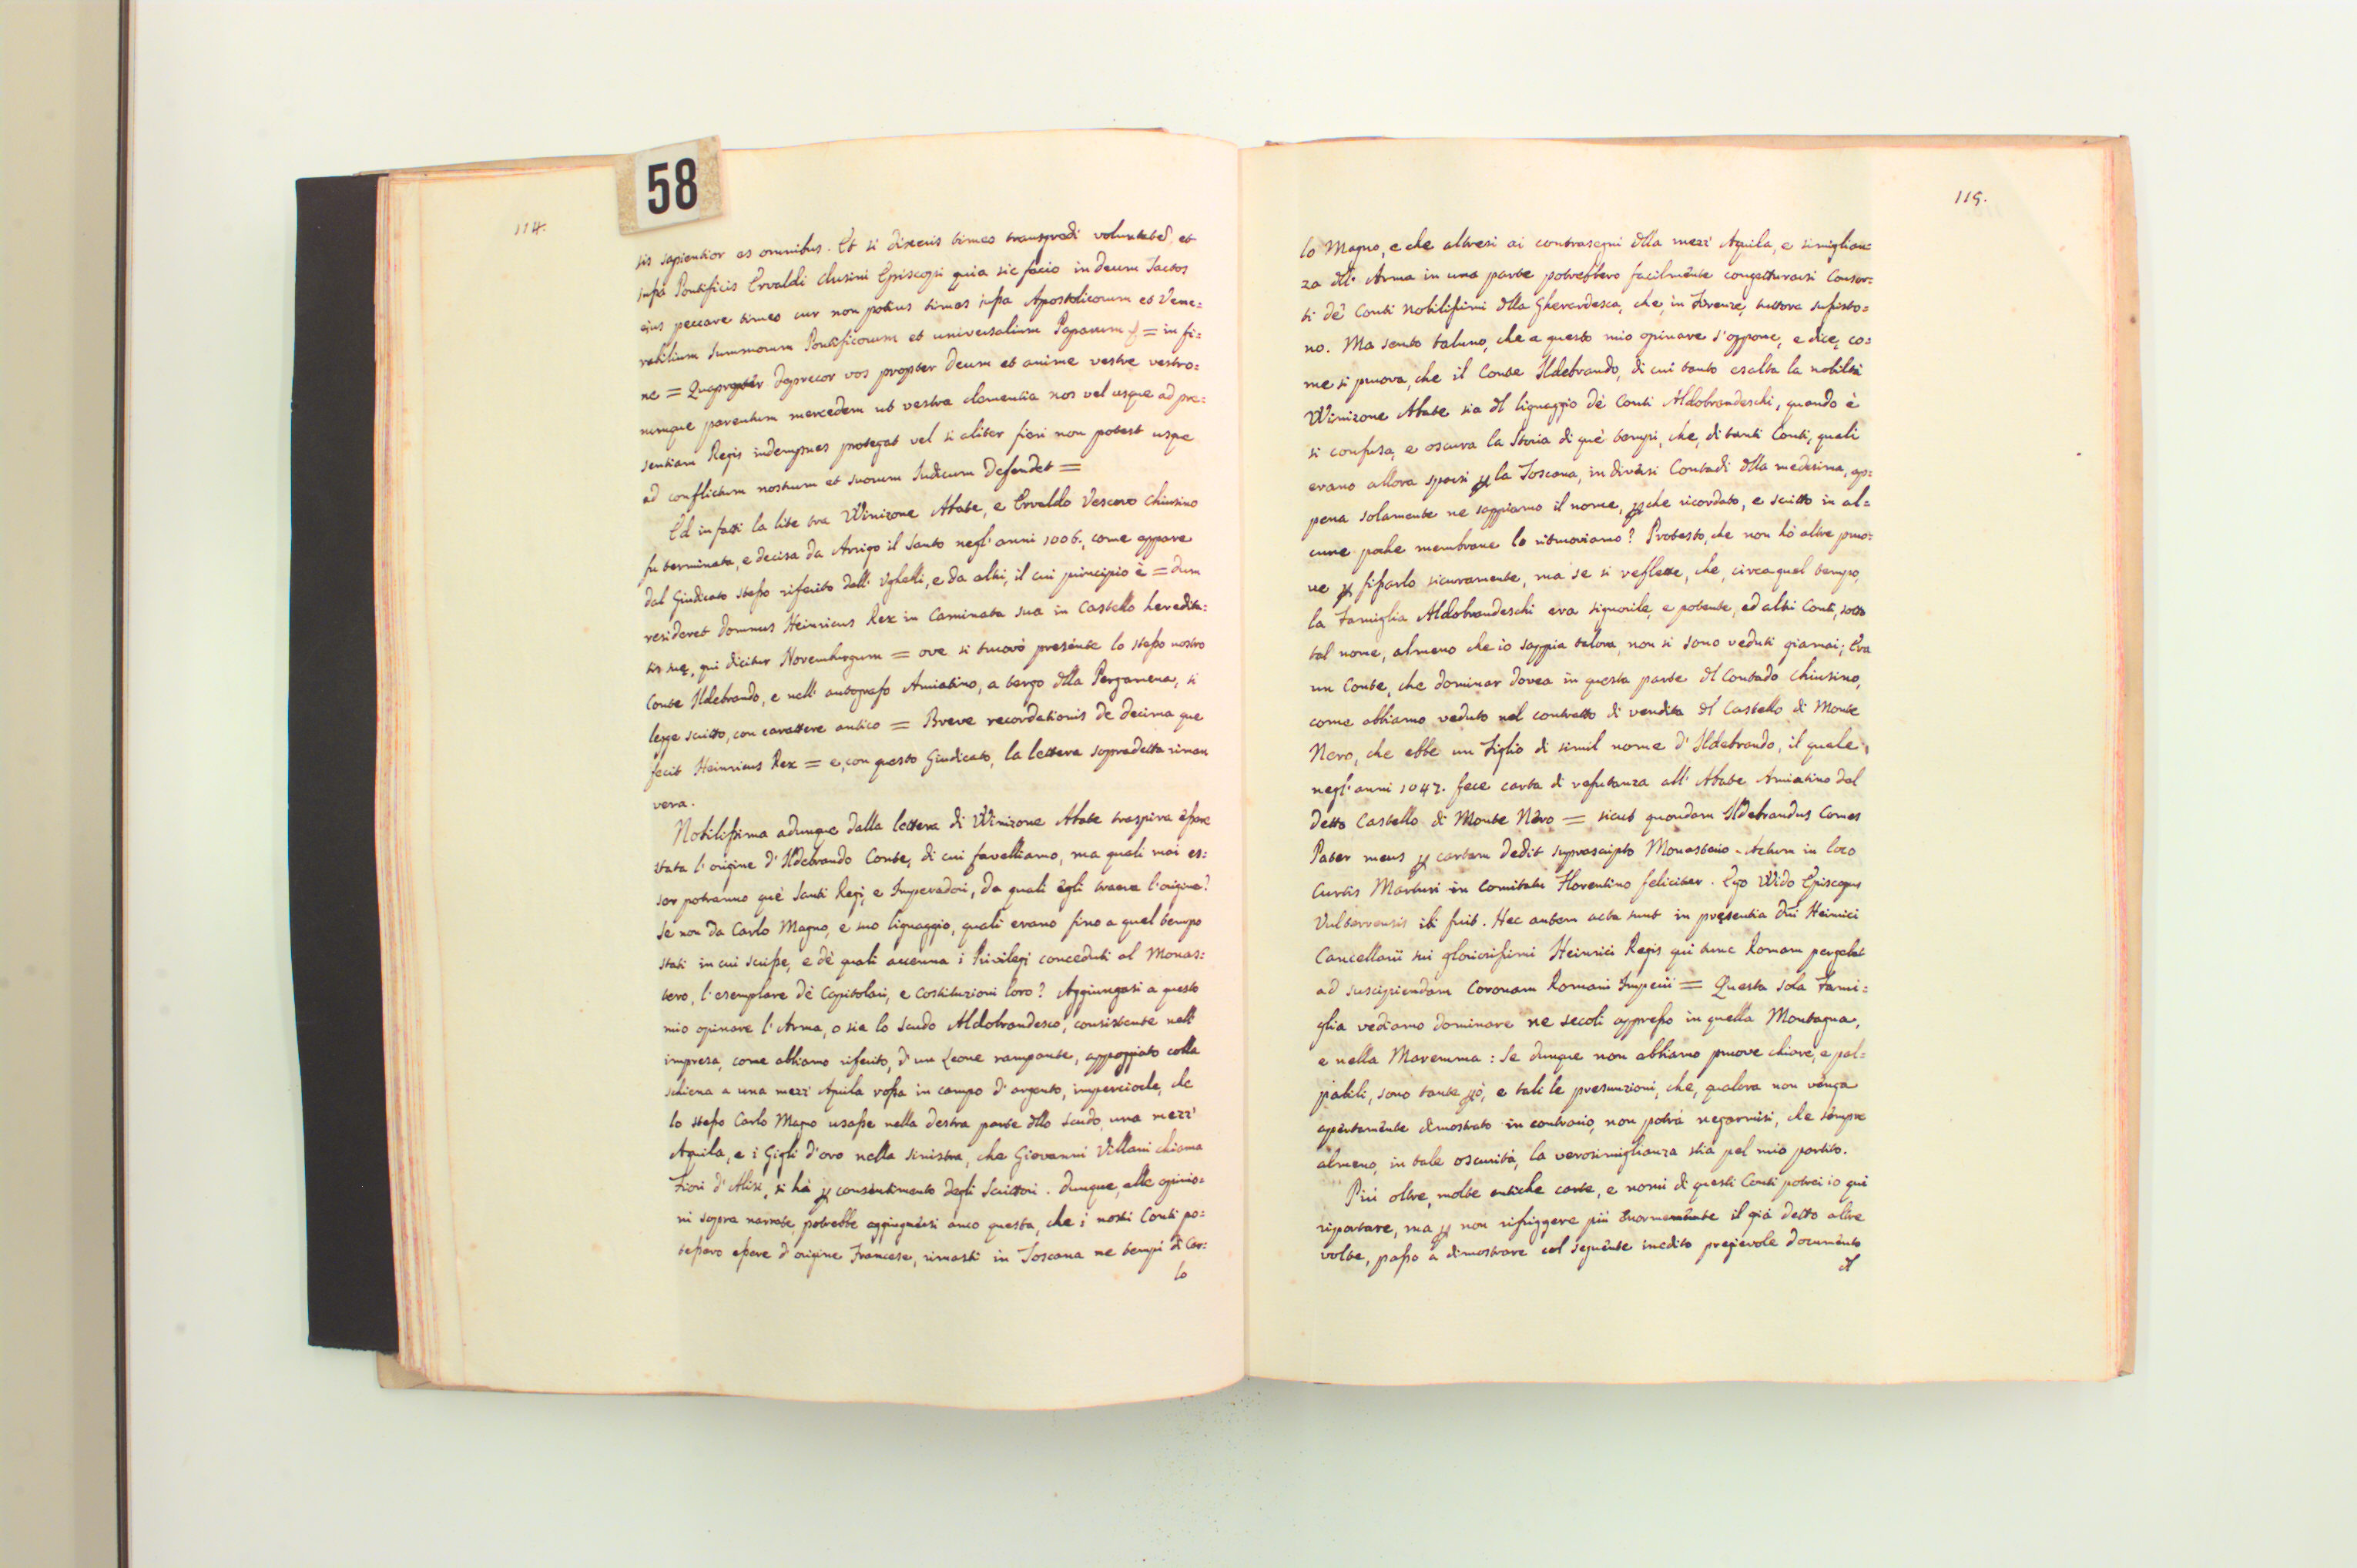 58
114.
sis sapientior es omnibus. Et si dixeris timeo transgredi voluntates et
jussa Pontificis Ervaldi Clusini Episcopi quia sic facio in deum Sactos
eius peccare timeo cur non potius times jussa Apostolicorum et Vene=
rabilium Summorum Pontificorum et universalium Paparum = in fi=
ne = Quapropter deprecor vos propter Deum et anime vestre vestro=
rumque parentum mercedem ut vestra clementia nos vel usque ad pre=
sentiam Regis indempnes protegat vel si aliter fieri non potest usque
ad conflictum nostrum et suorum Judicum defendet =
Ed in fatti la lite tra Winizone Abate, e Ervaldo Vescovo Chiusino
fu terminata, e decisa da Arrigo il Santo negl' anni 1006., come appare
dal Giudicato stesso riferito dall' Ughelli, e da altri, il cui principio è = dum
resideret domnus Heinricus Rex in Caminata sua in Castello heredita=
tis suę, qui dicitur Novemburgum = ove si truovò presente lo stesso nostro
Conte Ildebrando, e nell' autografo Amiatino, a tergo dlla Pergamena, si
legge scritto, con carattere antico = Breve recordationis de decima que
fecit Heinricus Rex = e, con questo Giudicato, la lettera sopradetta riman
vera.
Nobilissima adunque dalla lettera di Winizone Abate traspira èssere
stata l'origine d'Ildebrando Conte, di cui favelliamo, ma quali mai es=
ser potranno què Santi Regi, e Imperadori, da quali ègli traeva l'origine?
Se non da Carlo Magno, e suo lignaggio, quali erano fino a quel tempo
stati in cui scrisse, e dè quali accenna i Privilegi conceduti al Monas=
tero, l'esemplare dè Capitolari, e Costituzioni loro? Aggiungasi a questo
mio opinare l'Arma, o sia lo Scudo Aldobrandesco, consistente nell'
impresa, come abbiamo riferito, d'un Leone rampante, appoggiato colla
schiena a una mezz' Aquila rossa in campo d'argento, imperciocle, che
lo stesso Carlo Magno usasse nella destra parte dllo Scudo, una mezz'
Aquila, e i Gigli d'oro nella sinistra, che Giovanni Villani chiama
Fiori d'Alisi, si hà ꝑ consentimento degli Scrittori. Dunque, alle opinio=
ni sopra narrate, potrebbe aggiugnersi anco questa, che i nostri Conti po=
tessero essere d'origine Francese, rimasti in Toscana ne tempi di Car=
lo
115.
lo Magno, e che altresi ai contrasegni dlla mezz' Aquila, e simiglian=
za dll' Arma in una parte potrebbero facilmente congetturarsi Consor=
ti dè Conti Nobilissimi dlla Gherardesca, che, in Firenze, tuttora sussisto=
no. Ma sento taluno, che a questo mio opinare s'oppone, e dice, co=
me si pruova, che il Conte Ildebrando, di cui tanto esalta la nobiltà
Winizone Abate sia dl lignaggio dè Conti Aldobrandeschi, quando è
si confusa, e oscura la Storia di què tempi, che, di tanti Conti, quali
erano allora sparsi ꝑ la Toscana, in diversi Contadi dlla medesima, ap=
pena solamente ne sappiamo il nome, ꝑche ricordato, e scritto in al=
cune poche membrane lo ritruoviamo? Protesto, che non hò altre pruo=
ve ꝑ fissarlo sicuramente, ma se si reflette, che, circa quel tempo,
la Famiglia Aldobrandeschi era signorile, e potente, ed altri Conti, sotto
tal nome, almeno che io sappia talora, non si sono veduti giamai; Era
un Conte, che dominar dovea in questa parte dl Contado Chiusino,
come abbiamo veduto nel contratto di vendita dl Castello di Monte
Nero, che ebbe un Figlio di simil nome d'Ildebrando, il quale,
negl' anni 1047. fece carta di refutanza all' Abate Amiatino dal
detto Castello di Monte Nèro = sicut quondam Ildebrandus Comes
Pater meus ꝑ cartam dedit suprascripto Monasterio - Actum in loco
Curtis Marturi in Comitatu Florentino feliciter. Ego Wido Episcopus
Vulterrensis ibi fuit. Hec autem acta sunt in pręsentia dni Heinrici
Cancellarii sui gloriosissimi Heinrici Regis qui tunc Romam pergebat
ad suscipiendam Coronam Romani Imperii = Questa sola Fami=
glia vediamo dominare ne secoli appresso in quella Montagna,
e nella Maremma: Se dunque non abbiamo pruove chiare, e pal=
pabili, sono tante ꝑò, e tali le presunzioni, che, qualora non venga
apertamente dimostrato in contrario, non potrà negarmisi, che sempre
almeno, in tale oscurità, la verosimiglianza stia pel mio partito.
Più oltre, molte antiche carte, e nomi di questi Conti potrei io qui
riportare, ma ꝑ non rifriggere più il già detto altre
volte, passo a dimostrare col seguente inedito pregievole documento
dl